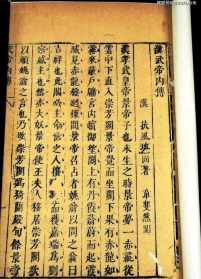 漢武帝內傳
漢 扶風班固著
漢孝武皇帝景帝子也未生之時景帝夢一赤彘從
雲中直下入崇芳閣景帝覺而坐閣下果有赤龍如
霧來蔽戶牖宮內嬪御望閣上有丹霞蓊蔚而起霞
滅見赤龍盤迴棟間景帝召占者姚翁以問之翁曰
吉祥也此閣必生命世之人攘夷狄而獲嘉瑞為劉
宗盛主也然亦大妖景帝使王夫人移居崇芳閣欲
以順姚翁之言也乃改崇芳閣為猗蘭殿旬餘景帝